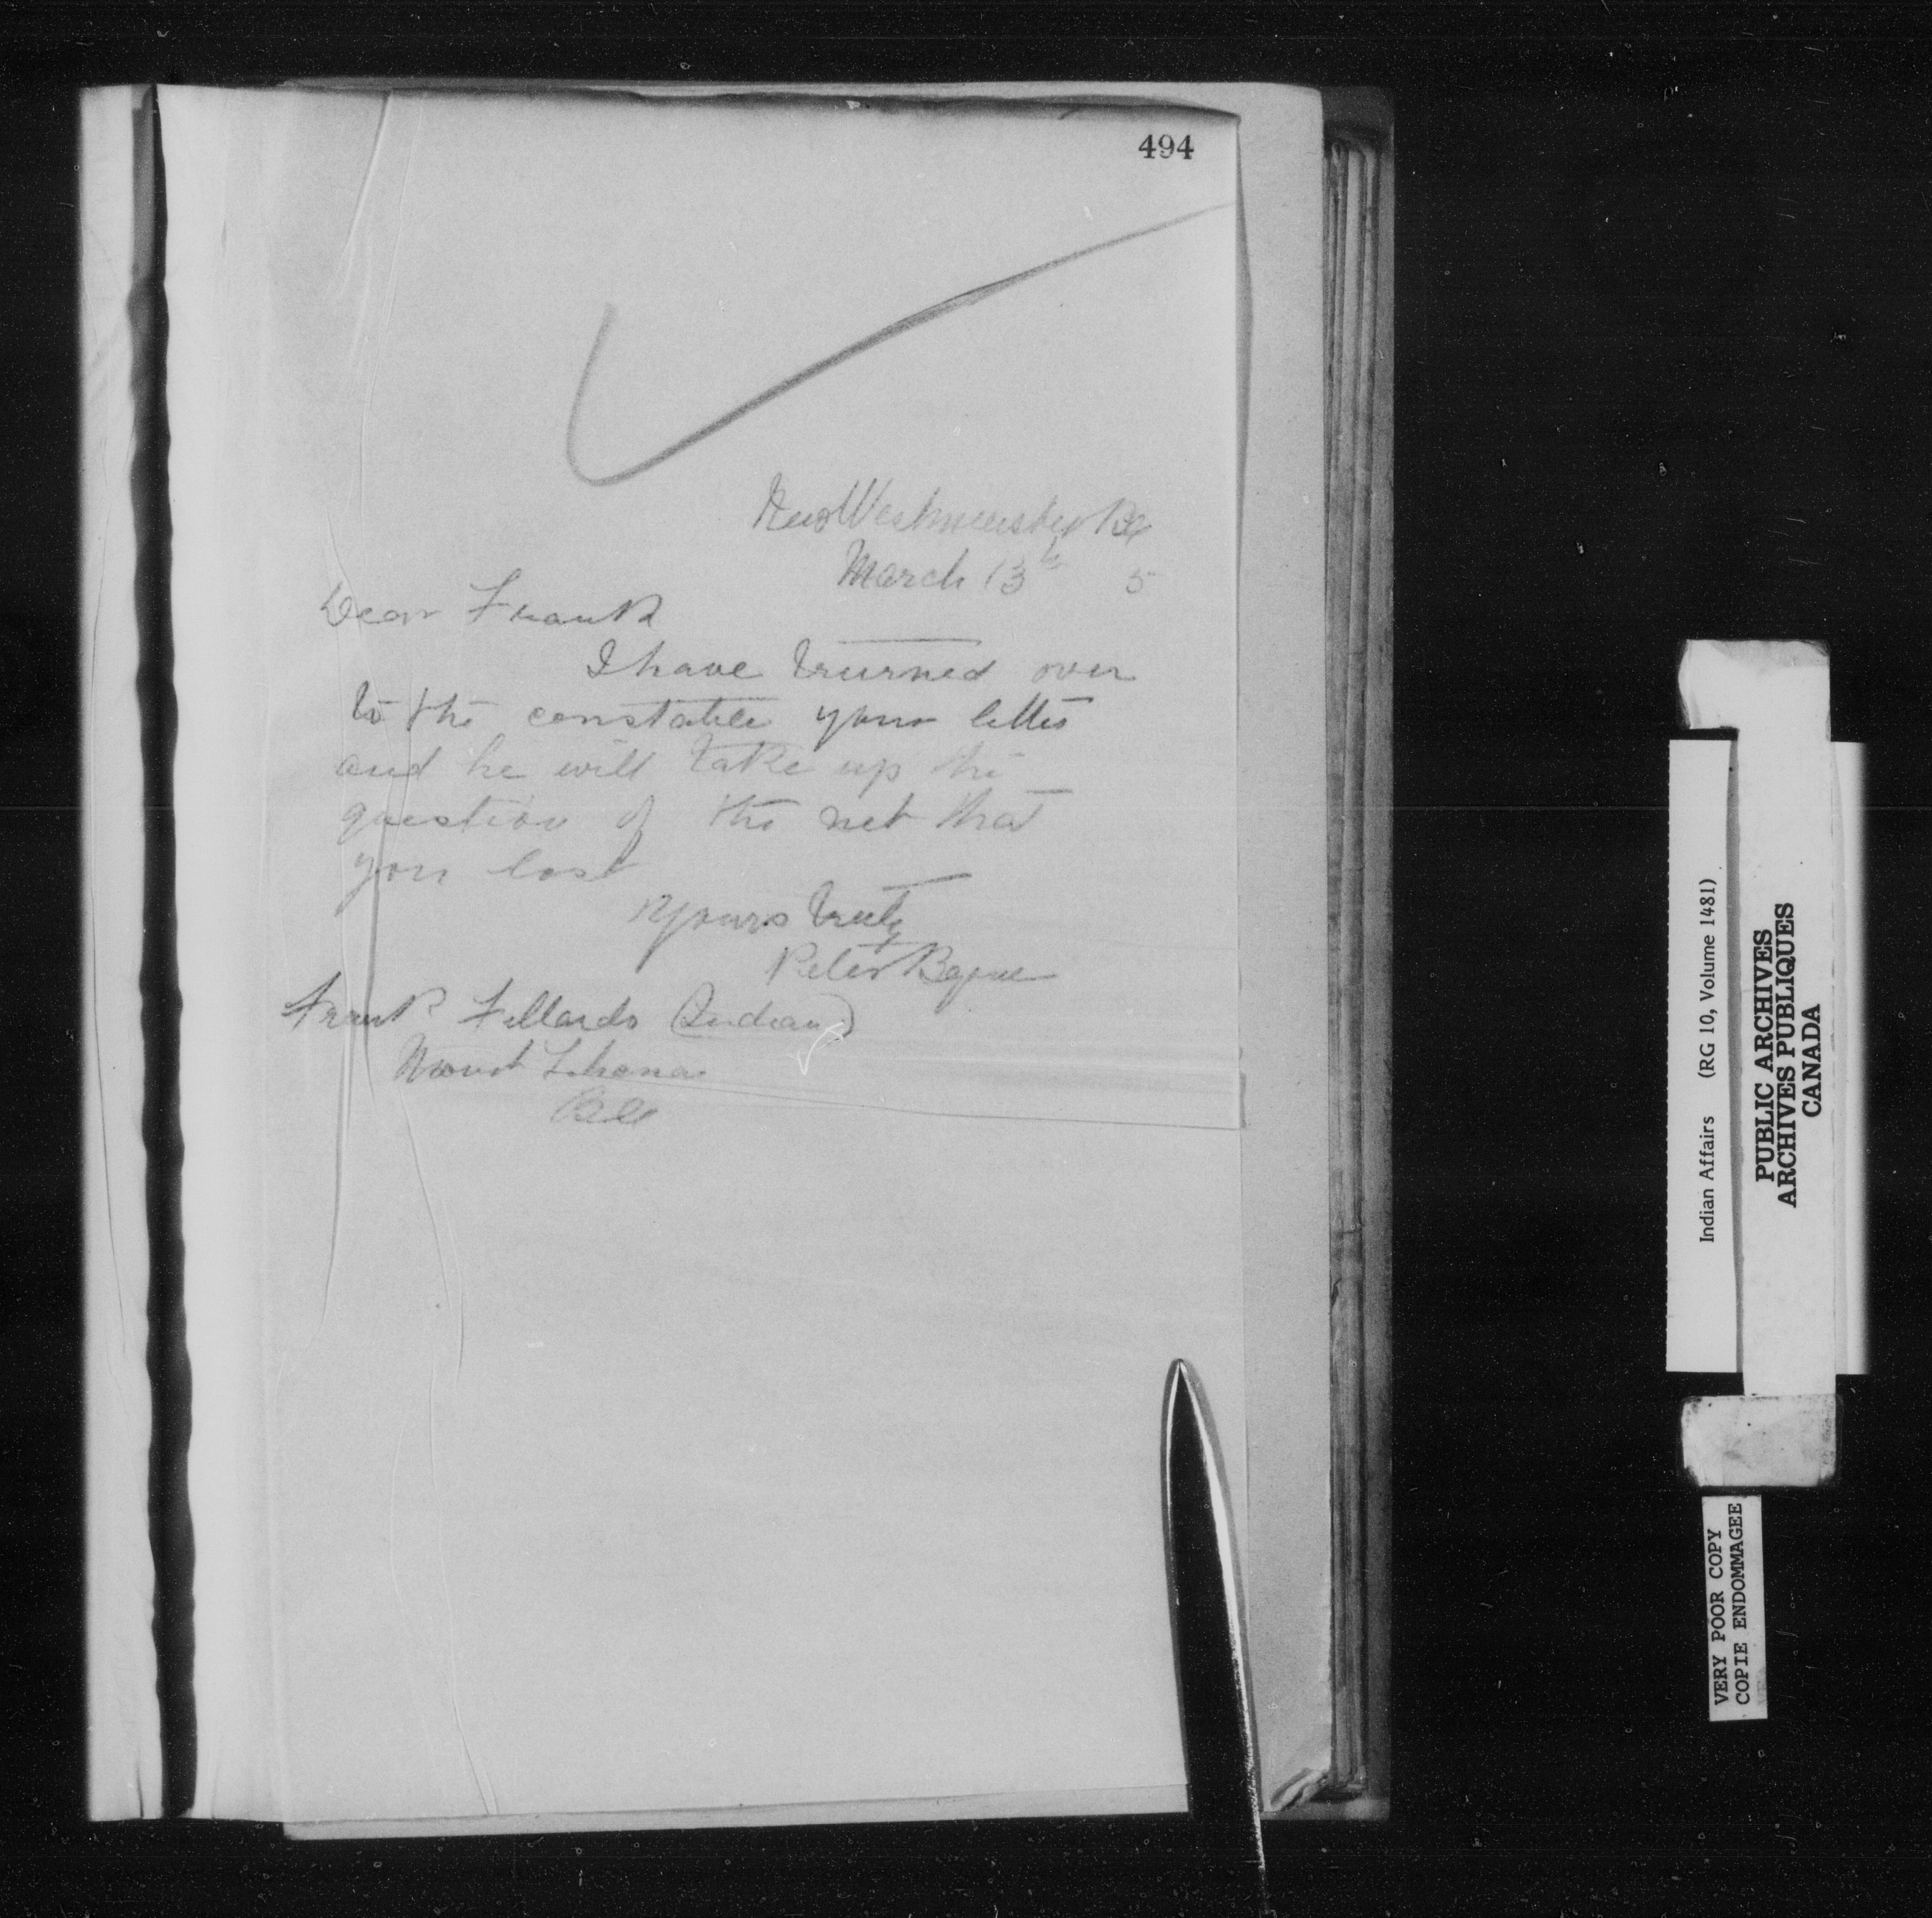 494
New Westminster BC
March 13th 5
Dear Frank
I have trurned over
to the constable your letter
and he will take up the
question of the net that
you lost
Yours truly
Peter Byrne
Frank (Indian)
Mount
Indian Affairs (RG 10, Volume 1481)
PUBLIC ARCHIVES
ARCHIVES PUBLIQUES
CANADA
VERY POOR COPY
COPIE ENDOMMAGEE